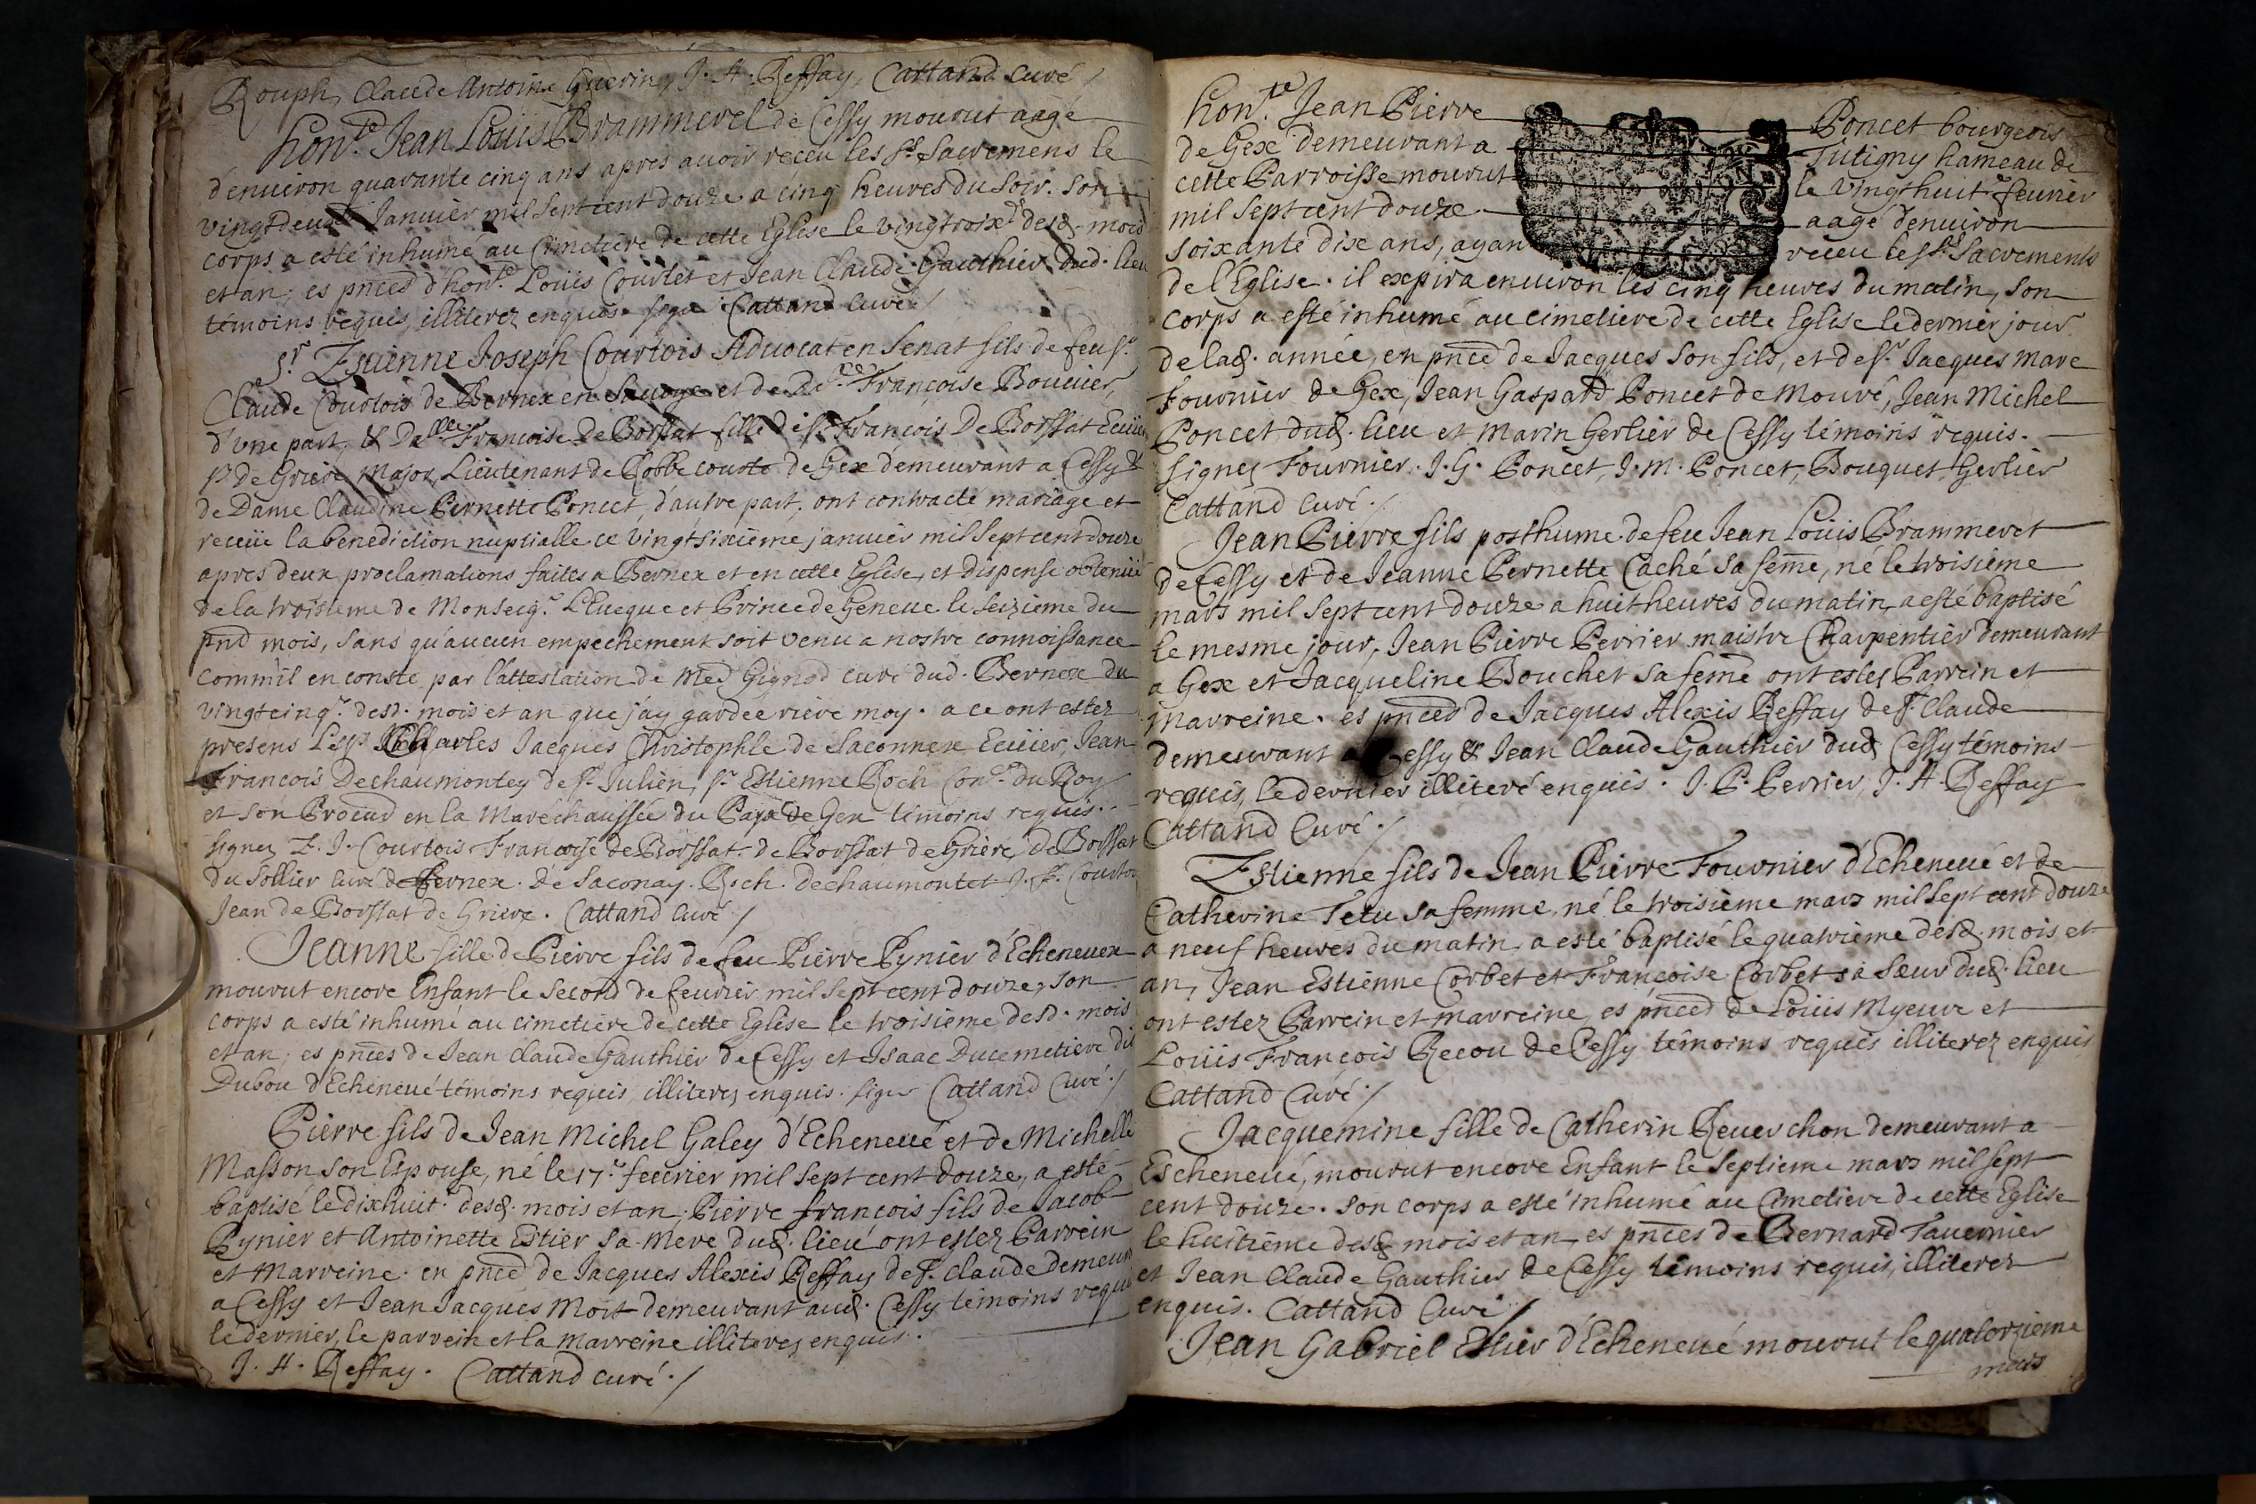 Rouph, Claude Antoine Guerin, J. A. Reffay, Cattand Curé /
hon.te Jean Loüis Brammerel de Cessy mourut aagé
d'enuiron quarante cinq ans apres auoir receu les Sts Sacremens le
vingtdeux Januier mil sept cent douze a cinq heures du soir. son
corps a esté inhumé au Cimetiere de cette Eglise le vingtroix.e desd. mois
et an, es pnces d'hon.te Loüis Courtet et Jean Claude Gauthier dud. lieu
témoins requis, illiterez enquis. signé Cattand Curé /
Sr. Estienne Joseph Courtois Aduocat en Senat fils de feu Sr.
Claude Courtois de Bernex en Sauoye et de Françoise Bouuier,
d'vne part, & Dalle. Francoise De Borssat fille de Sr. François De Borssat Ecüier
Sr. de Griere Major, Lieutenant de Robbe courte de Gex demeurant a Cessy &
de Dame Claudine Pernette Poncet, d'autre part, ont contracté mariage et
receüe la benediction nuptialle ce vingtsixieme januier mil sept cent douze
apres deux proclamations faites a Bernex et en cette Eglise, et dispense obtenüe
de la troisieme de Monseigr. L'Eueque et Prince de Geneue le seizieme du
pnd mois, sans qu'aucun empechement soit venu a nostre connoissance
comm'il en conste par l'attestation de Gignod curé dud. Bernex du
vingtcinq.e desd. mois et an que j'ay gardée riere moy. a ce ont estez
presens Charles Jacques Christophle de Saconnex Ecüier, Jean
François Dechaumontey de St. Julien, Sr. Estienne Roch Con.er du Roy
et son Procur.d en la Maréchaussée du Pays de Gex témoins requis.
signez E. J. Courtois Françoise de Borssat. de Borssat de Griere, De Borssat
du Sollier curé de Bernex. de Saconay. Roch. dechaumontet J. F. Courtois
Jean de Borssat de Griere. Cattand Curé /
Jeanne fille de Pierre fils de feu Pierre Pynier d'Echeneuex
mourut encore Enfant le second de feurier mil sept cent douze, son
corps a esté inhumé au cimetiere de cette Eglise le troisieme desd. mois
et an, es pnces de Jean Claude Gauthier de Cessy et Isaac Ducemetiere dit
Dubou d'Echeneué témoins requis, illiterez enquis. signé Cattand Curé /
Pierre fils de Jean Michel Galey d'Echeneué et de Michelle
Masson son Espouse, né le 17.e feurier mil sept cent douze, a esté
baptisé le dixhuit.e desd. mois et an, Pierre françois fils de Jacob
Pynier et Antoinette Estier sa mere dud. lieu ont estez Parrein
et Marreine. en pnce de Jacques Alexis Reffay de St. Claude demeurt
a Cessy et Jean Jacques Moit demeurant aud. Cessy témoins requis
le dernier, le parrein et la marreine illiterez enquis.
J. A. Reffay. Cattand curé. /
hon.te Jean Pierre Poncet bourgeois
de Gex demeurant a Tutigny hameau de
cette Parroisse mourut le vingthuit.e feurier
mil sept cent douze aagé d'enuiron
soixante dix ans, ayan receu les Sts. Sacrements
de l'Eglise. il expira enuiron les cinq heures du matin, son
corps a esté inhumé au cimetiere de cette Eglise le dernier jour
de lad. année, en pnce de Jacques son fils, et de Sr. Jacques Marc
Fournier de Gex, Jean Gaspard Poncet de Mouré, Jean Michel
Poncet dud. lieu et Marin Gerlier de Cessy témoins requis.
signez Fournier. J. G. Poncet, J. M. Poncet, Bouquet, Gerlier
Cattand Curé. /
Jean Pierre fils posthume de feu Jean Loüis Brammeret
de Cessy et de Jeanne Pernette Caché sa feme, né le troisieme
mars mil sept cent douze a huit heures du matin, a esté baptisé
le mesme jour, Jean Pierre Perrier maistre Charpentier demeurant
a Gex et Jacqueline Bouchet sa feme ont estez Parrein et
marreine. es pnces de Jacques Alexis Reffay de St. Claude
demeurant a Cessy & Jean Claude Gauthier dud. Cessy témoins
requis, le dernier illiteré enquis. J. P. Perrier, J. A. Reffay
Cattand Curé. /
Estienne fils de Jean Pierre Fournier d'Echeneué et de
Catherine Tetu sa femme, né le troisième mars mil sept cent douze
a neuf heures du matin, a esté baptisé le quatrieme desd. mois et
an, Jean Estienne Corbet et Françoise Corbet sa sœur dud. lieu
ont estez Parrein et marreine, es pnces de Loüis Myeure et
Loüis François Recou de Cessy témoins requis illiterez enquis
Cattand Curé. /
Jacquemine fille de Catherin Reuerchon demeurant a
Escheneué, mourut encore Enfant le septieme mars mil sept
cent douze. son corps a esté inhumé au Cimetiere de cette Eglise
le huitième desd. mois et an es pnces de Bernard Tauernier
et Jean Claude Gauthier de Cessy témoins requis, illiterez
enquis. Cattand Curé /
Jean Gabriel Estier d'Echeneué mourut le quatorzieme
mars